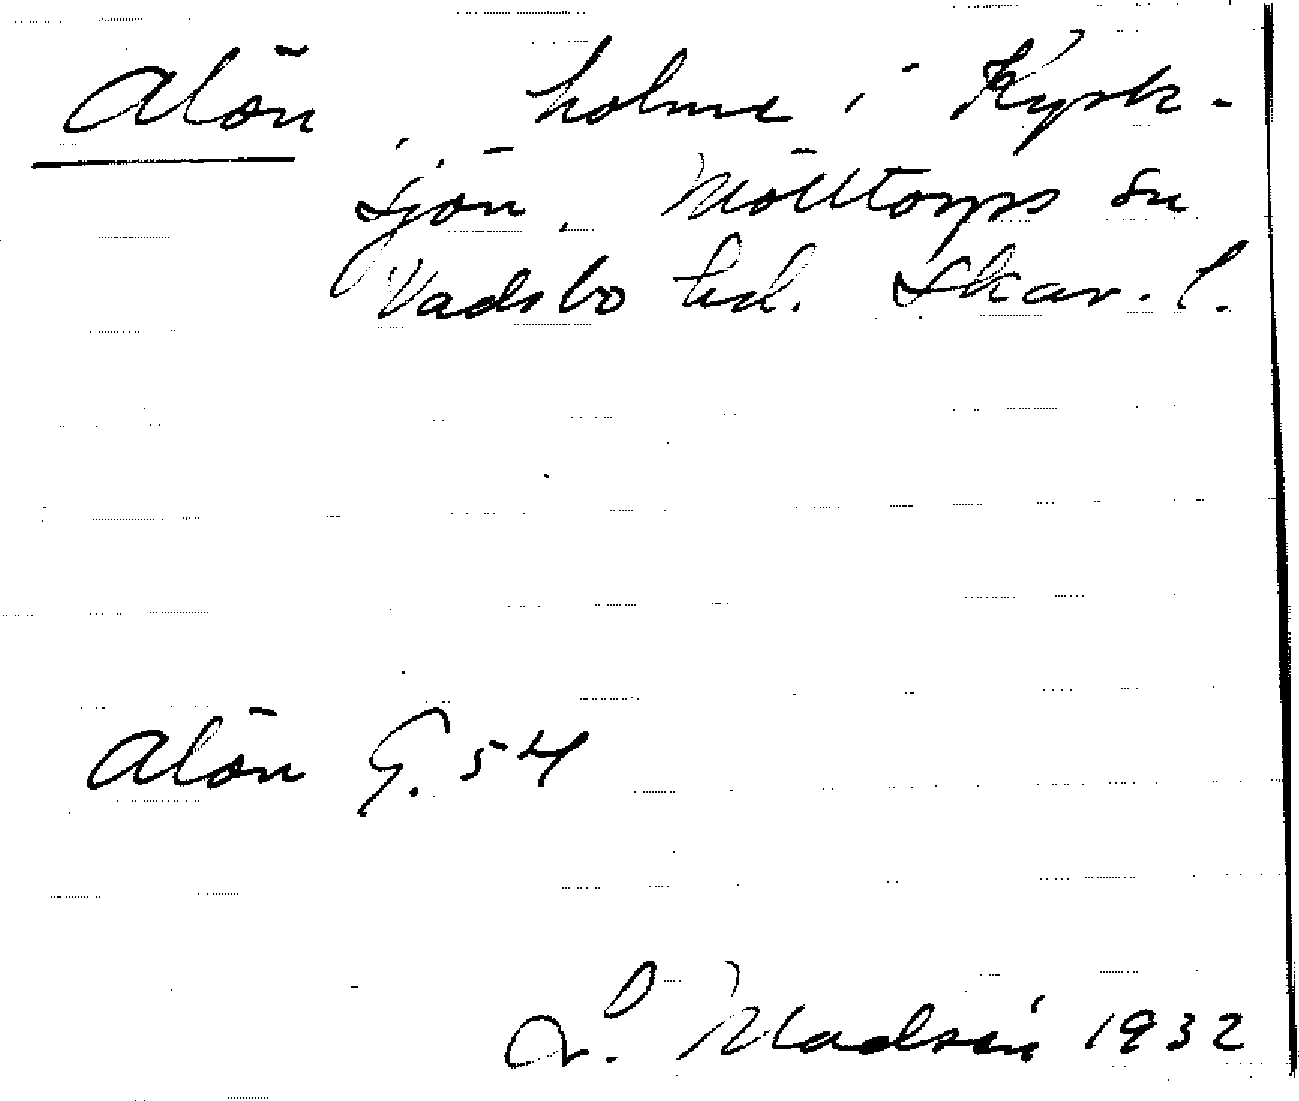 Alön, holme i Kyrk-
sjön, Mölltorps sn
Vadsbo hd. Skar. l.
Alön G. 54
D. Madsén 1932